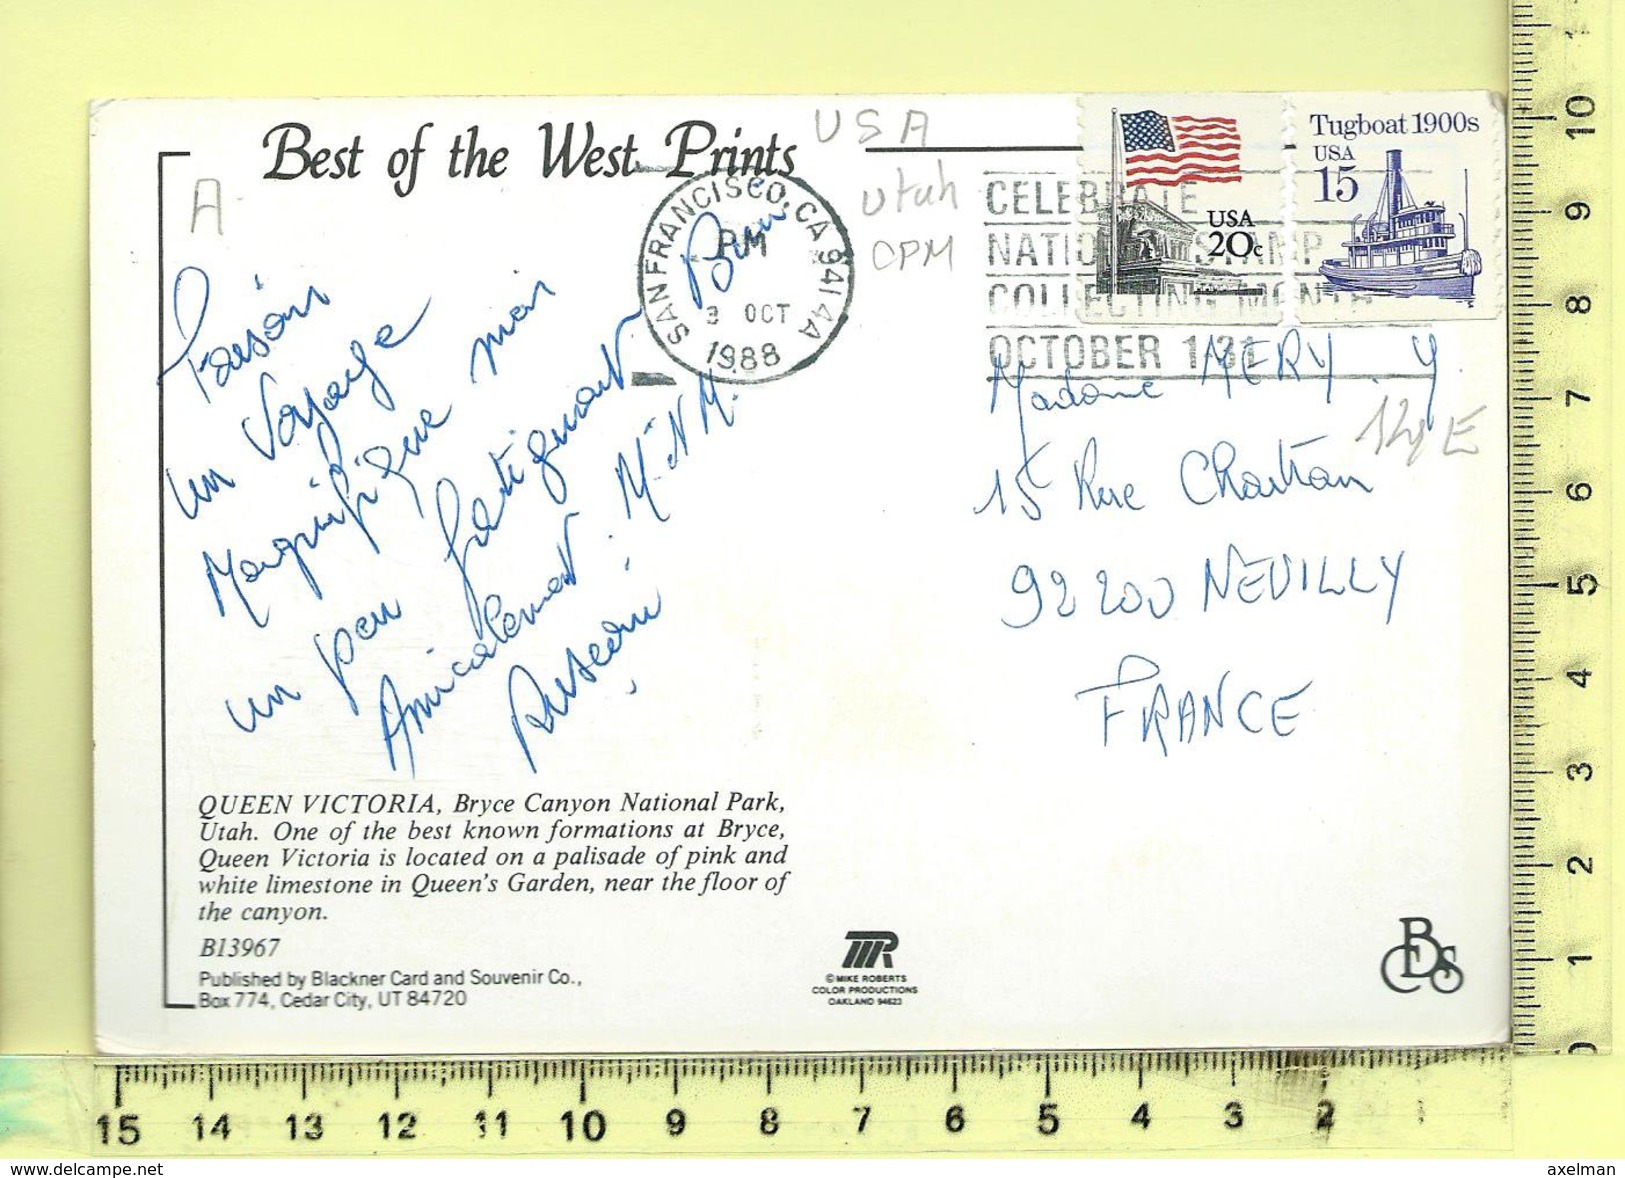 Best of the West Prints
USA
Utah
CPM
A
SAN FRANCISCO, CA 94144
PM
3 OCT
1988
CELEBRATE
NATIONAL STAMP
COLLECTING MONTH
OCTOBER 1-31
USA
20c
Tugboat 1900s
USA
15
Faisons
un Voyage
Magnifique mais
un peu fatiguant
Amicalement. M. N M.
Madame MERY . Y
15 Rue Charcot
92200 NEUILLY
FRANCE
QUEEN VICTORIA, Bryce Canyon National Park,
Utah. One of the best known formations at Bryce,
Queen Victoria is located on a palisade of pink and
white limestone in Queen's Garden, near the floor of
the canyon.
B13967
Published by Blackner Card and Souvenir Co.,
Box 774, Cedar City, UT 84720
© MIKE ROBERTS
COLOR PRODUCTIONS
OAKLAND 94623
BCS
10
9
8
7
6
5
4
3
2
1
0
15 14 13 12 11 10 9 8 7 6 5 4 3 2
www.delcampe.net
axelman